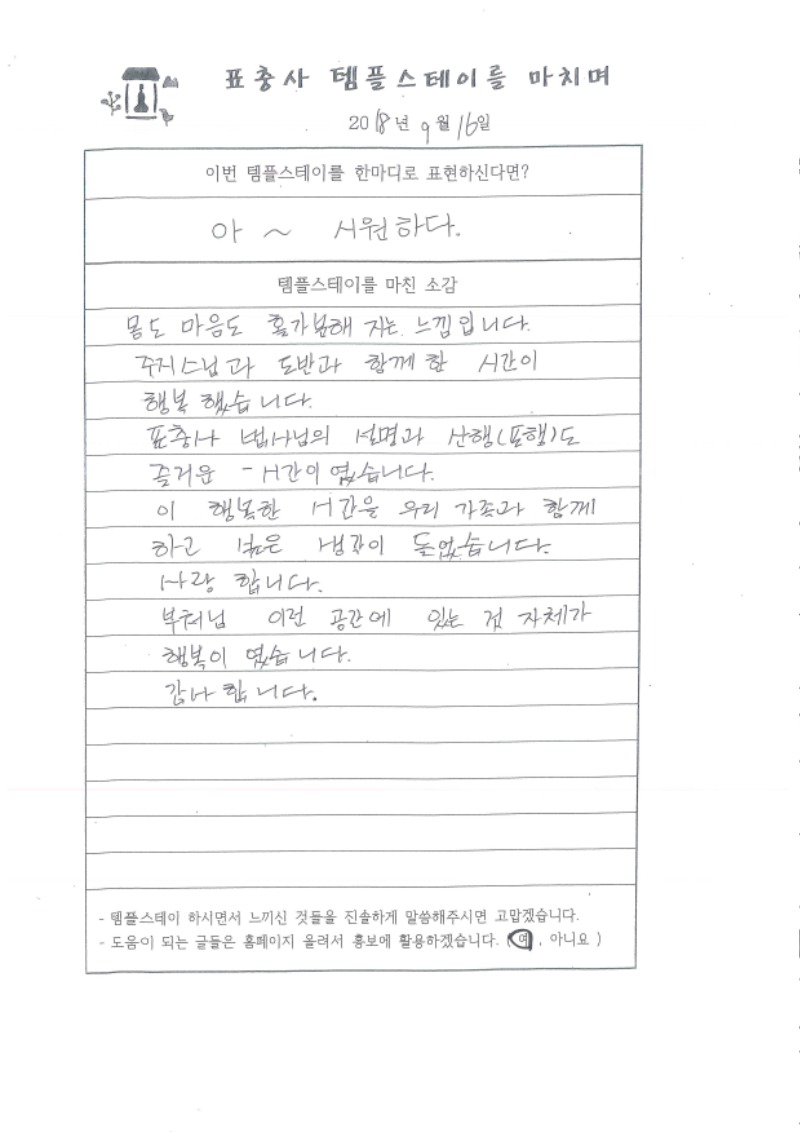 표충사 템플스테이를 마치며
2018년 9월 16일
이번 템플스테이를 한마디로 표현하신다면?
아 ~ 시원하다.
템플스테이를 마친 소감
몸도 마음도 홀가분해 지는 느낌입니다.
주지스님과 도반과 함께 한 시간이
행복 했습니다.
표충사 법사님의 설명과 산행(포행)도
즐거운 시간이 였습니다.
이 행복한 시간을 우리 가족과 함께
하고 싶은 생각이 들었습니다.
사랑 합니다.
부처님 이런 공간에 있는 것 자체가
행복이 였습니다.
감사 합니다.
- 템플스테이 하시면서 느끼신 것들을 진솔하게 말씀해주시면 고맙겠습니다.
- 도움이 되는 글들은 홈페이지 올려서 홍보에 활용하겠습니다. (예 , 아니요 )